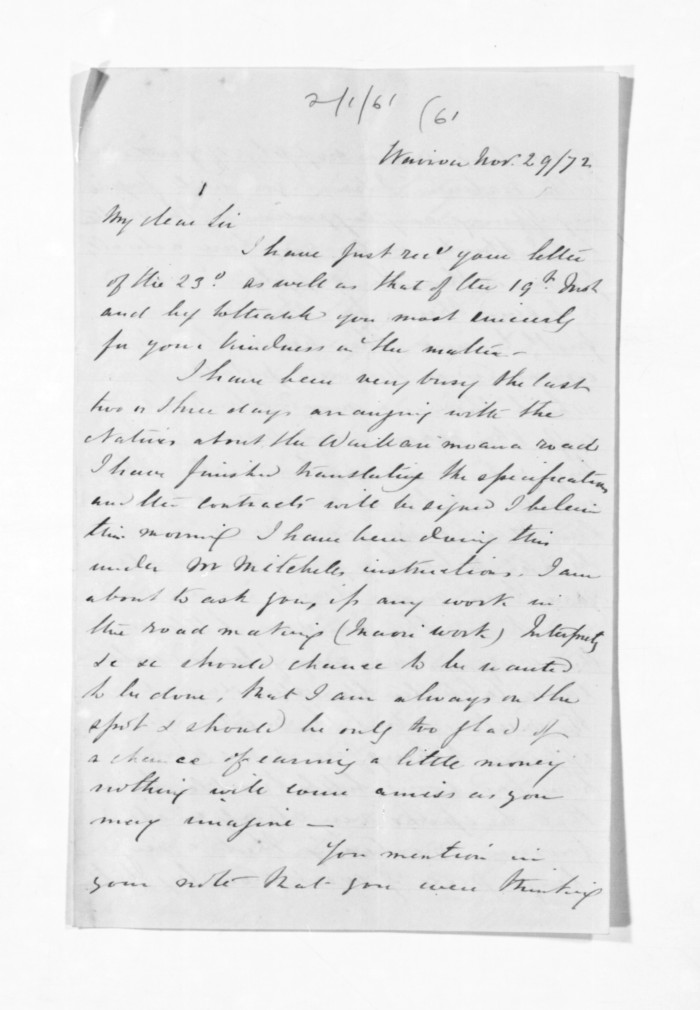 2/1/61 (61
Wairoa Nov. 29/72
1
My dear Sir
I have just recd your letter
of the 23d as well as that of the 19th Inst
and beg to thank you most sincerely
for your kindness in the matter -
I have been very busy the last
two or three days arranging with the
Natives about the Waikare moana road
I have finished translating the specifications
and the contracts will be signed I believe
this morning I have been doing this
under Mr Mitchells instructions. I am
about to ask you, if any work in
the road making (Maori work) Interpretg
&c &c should chance to be wanted
to be done, that I am always on the
spot & should be only too glad of
a chance of earning a little money
nothing will come amiss as you
may imagine -
You mention in
your note that you were thinking